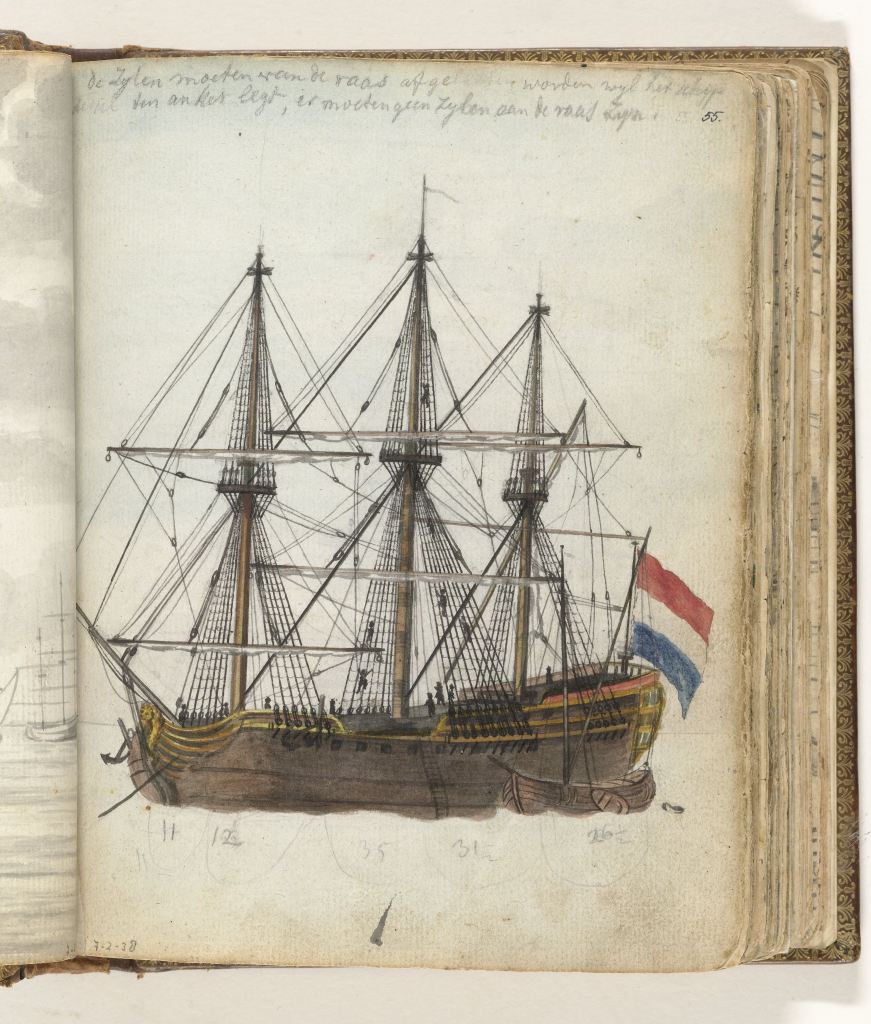 de Zylen moeten van de raas af ge worden wyl het schip
ten anker legt, er moeten geen zylen aan de raas Zyn.
55.
11 12½ 35 31½ 26½
11
7-2-38